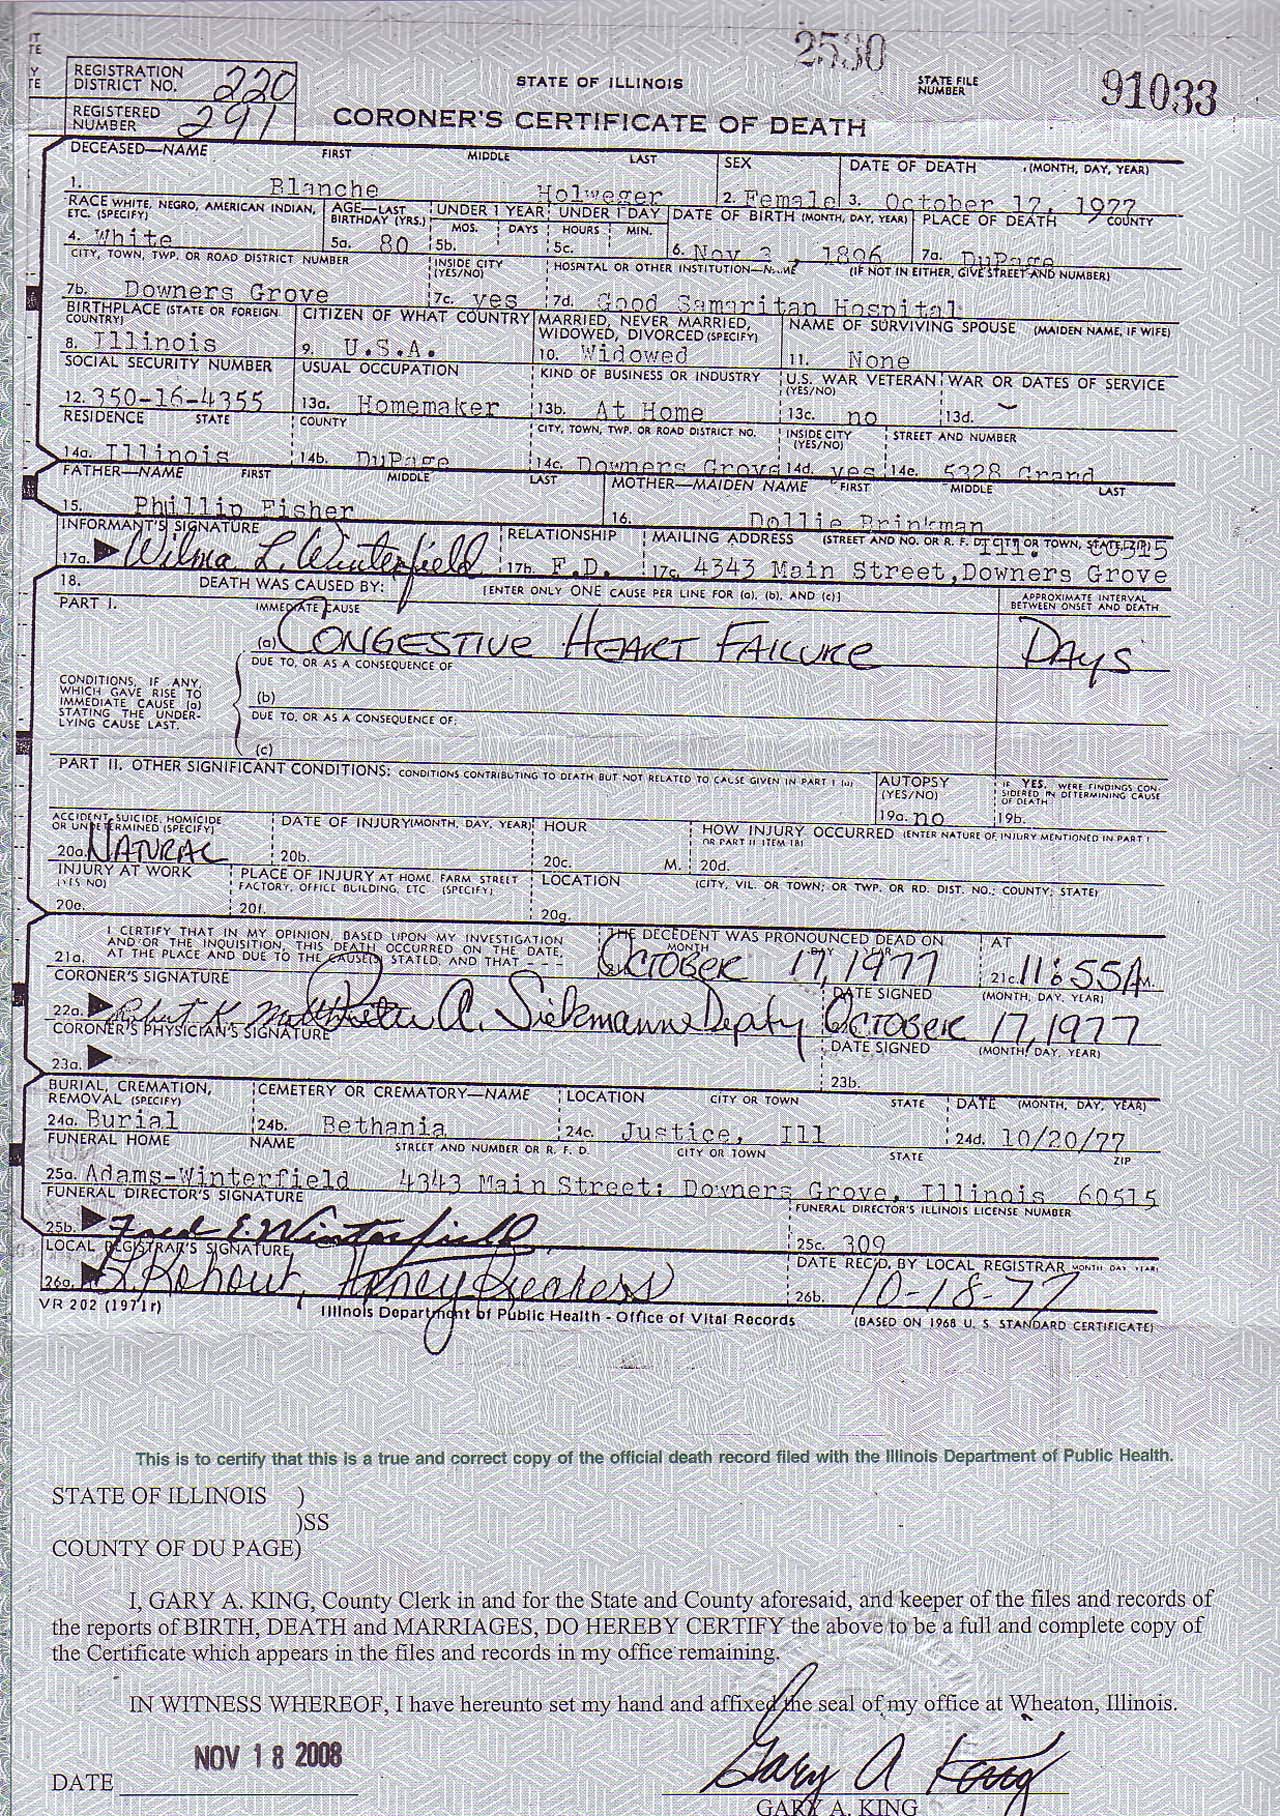 2530
REGISTRATION DISTRICT NO. 220
STATE OF ILLINOIS
STATE FILE NUMBER 91033
REGISTERED NUMBER 291
CORONER'S CERTIFICATE OF DEATH
DECEASED—NAME FIRST MIDDLE LAST SEX DATE OF DEATH (MONTH, DAY, YEAR)
1. Blanche Holweger 2. Female 3. October 17, 1977
RACE WHITE, NEGRO, AMERICAN INDIAN, ETC. (SPECIFY) AGE—LAST BIRTHDAY (YRS.) UNDER 1 YEAR MOS. DAYS UNDER 1 DAY HOURS MIN. DATE OF BIRTH (MONTH, DAY, YEAR) PLACE OF DEATH COUNTY
4. White 5a. 80 5b. 5c. 6. Nov , 1896 7a. DuPage
CITY, TOWN, TWP. OR ROAD DISTRICT NUMBER INSIDE CITY (YES/NO) HOSPITAL OR OTHER INSTITUTION—NAME (IF NOT IN EITHER, GIVE STREET AND NUMBER)
7b. Downers Grove 7c. yes 7d. Good Samaritan Hospital
BIRTHPLACE (STATE OR FOREIGN COUNTRY) CITIZEN OF WHAT COUNTRY MARRIED, NEVER MARRIED, WIDOWED, DIVORCED (SPECIFY) NAME OF SURVIVING SPOUSE (MAIDEN NAME, IF WIFE)
8. Illinois 9. U.S.A. 10. Widowed 11. None
SOCIAL SECURITY NUMBER USUAL OCCUPATION KIND OF BUSINESS OR INDUSTRY U.S. WAR VETERAN (YES/NO) WAR OR DATES OF SERVICE
12. 350-16-4355 13a. Homemaker 13b. At Home 13c. no 13d. -
RESIDENCE STATE COUNTY CITY, TOWN, TWP. OR ROAD DISTRICT NO. INSIDE CITY (YES/NO) STREET AND NUMBER
14a. Illinois 14b. DuPage 14c. Downers Grove 14d. yes 14e. 5328 Grand
FATHER—NAME FIRST MIDDLE LAST MOTHER—MAIDEN NAME FIRST MIDDLE LAST
15. Phillip Fisher 16. Dollie Brinkman
INFORMANT'S SIGNATURE RELATIONSHIP MAILING ADDRESS (STREET AND NO. OR R. F. D., CITY OR TOWN, STATE, ZIP) Ill. 60515
17a. Wilma L. Winterfield 17b. F.D. 17c. 4343 Main Street, Downers Grove
18. DEATH WAS CAUSED BY: [ENTER ONLY ONE CAUSE PER LINE FOR (a), (b), AND (c)] APPROXIMATE INTERVAL BETWEEN ONSET AND DEATH
PART I. IMMEDIATE CAUSE
(a) CONGESTIVE HEART FAILURE DAYS
DUE TO, OR AS A CONSEQUENCE OF
CONDITIONS, IF ANY, WHICH GAVE RISE TO IMMEDIATE CAUSE (a) STATING THE UNDERLYING CAUSE LAST.
(b)
DUE TO, OR AS A CONSEQUENCE OF:
(c)
PART II. OTHER SIGNIFICANT CONDITIONS: CONDITIONS CONTRIBUTING TO DEATH BUT NOT RELATED TO CAUSE GIVEN IN PART I (a) AUTOPSY (YES/NO) IF YES, WERE FINDINGS CONSIDERED IN DETERMINING CAUSE OF DEATH
19a. no 19b.
ACCIDENT, SUICIDE, HOMICIDE OR UNDETERMINED (SPECIFY) DATE OF INJURY (MONTH, DAY, YEAR) HOUR HOW INJURY OCCURRED (ENTER NATURE OF INJURY MENTIONED IN PART I OR PART II ITEM 18)
20a. NATURAL 20b. 20c. M. 20d.
INJURY AT WORK (YES NO) PLACE OF INJURY AT HOME, FARM, STREET FACTORY, OFFICE BUILDING, ETC (SPECIFY) LOCATION (CITY, VIL. OR TOWN; OR TWP. OR RD. DIST. NO.; COUNTY; STATE)
20e. 20f. 20g.
I CERTIFY THAT IN MY OPINION, BASED UPON MY INVESTIGATION AND/OR THE INQUISITION, THIS DEATH OCCURRED ON THE DATE, AT THE PLACE AND DUE TO THE CAUSE(S) STATED, AND THAT - - -
THE DECEDENT WAS PRONOUNCED DEAD ON MONTH DAY YEAR AT
21a. OCTOBER 17, 1977 21c. 11:55 A M.
CORONER'S SIGNATURE DATE SIGNED (MONTH, DAY, YEAR)
22a. Robert K. A. Siekmann Deputy OCTOBER 17, 1977
CORONER'S PHYSICIAN'S SIGNATURE DATE SIGNED (MONTH, DAY, YEAR)
23a. 23b.
BURIAL, CREMATION, REMOVAL (SPECIFY) CEMETERY OR CREMATORY—NAME LOCATION CITY OR TOWN STATE DATE (MONTH, DAY, YEAR)
24a. Burial 24b. Bethania 24c. Justice, Ill 24d. 10/20/77
FUNERAL HOME NAME STREET AND NUMBER OR R. F. D. CITY OR TOWN STATE ZIP
25a. Adams-Winterfield 4343 Main Street; Downers Grove, Illinois 60515
FUNERAL DIRECTOR'S SIGNATURE FUNERAL DIRECTOR'S ILLINOIS LICENSE NUMBER
25b. Fred E. Winterfield 25c. 309
LOCAL REGISTRAR'S SIGNATURE DATE REC'D. BY LOCAL REGISTRAR MONTH DAY YEAR
26a. Kohout, Nancy 26b. 10-18-77
VR 202 (1971r) Illinois Department of Public Health - Office of Vital Records (BASED ON 1968 U. S. STANDARD CERTIFICATE)
This is to certify that this is a true and correct copy of the official death record filed with the Illinois Department of Public Health.
STATE OF ILLINOIS )
)SS
COUNTY OF DU PAGE)
I, GARY A. KING, County Clerk in and for the State and County aforesaid, and keeper of the files and records of
the reports of BIRTH, DEATH and MARRIAGES, DO HEREBY CERTIFY the above to be a full and complete copy of
the Certificate which appears in the files and records in my office remaining.
IN WITNESS WHEREOF, I have hereunto set my hand and affixed the seal of my office at Wheaton, Illinois.
NOV 18 2008
DATE
Gary A King
GARY A. KING